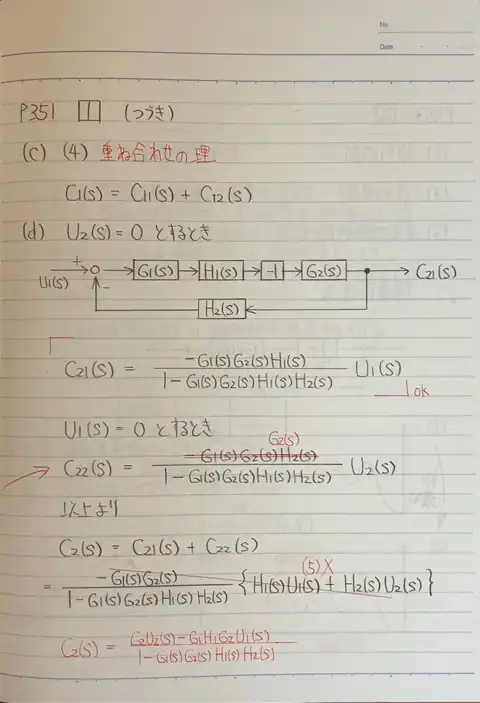 No
Date
P351 1 (つづき)
(c) (4) 重ね合わせの理
C₁(s) = C₁₁(s) + C₁₂(s)
(d) U₂(s) = 0 とするとき
U₁(s) + - G₁(s) H₁(s) -1 G₂(s) C₂₁(s)
H₂(s)
C₂₁(s) = -G₁(s)G₂(s)H₁(s) / 1-G₁(s)G₂(s)H₁(s)H₂(s) U₁(s)
ok
U₁(s) = 0 とするとき
G₂(s)
C₂₂(s) = -G₁(s)G₂(s)H₂(s) / 1-G₁(s)G₂(s)H₁(s)H₂(s) U₂(s)
以上より
C₂(s) = C₂₁(s) + C₂₂(s)
(5)×
= -G₁(s)G₂(s) / 1-G₁(s)G₂(s)H₁(s)H₂(s) {H₁(s)U₁(s) + H₂(s)U₂(s)}
C₂(s) = G₂U₂(s)-G₁H₁G₂U₁(s) / 1-G₁(s)G₂(s)H₁(s)H₂(s)